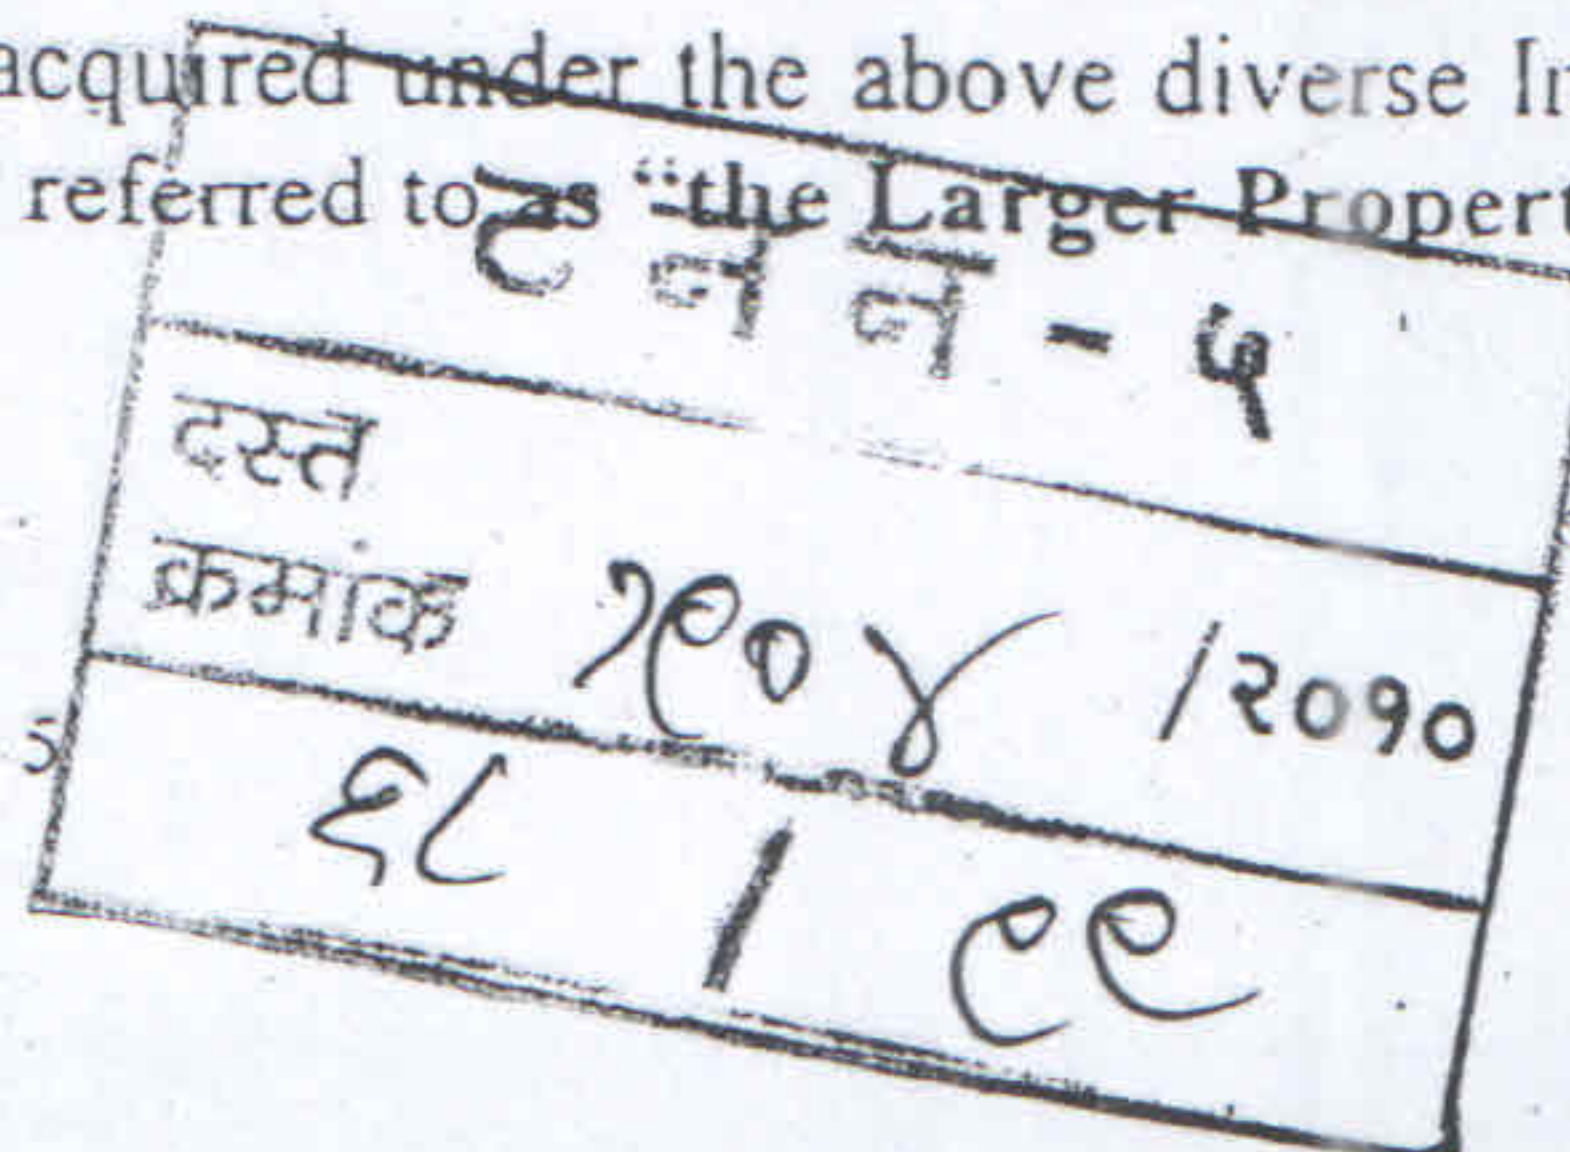 acquired under the above diverse
referred to as “the Larger
ट न न - ५
दस्त
क्रमांक /२०१०
६८ / ९९